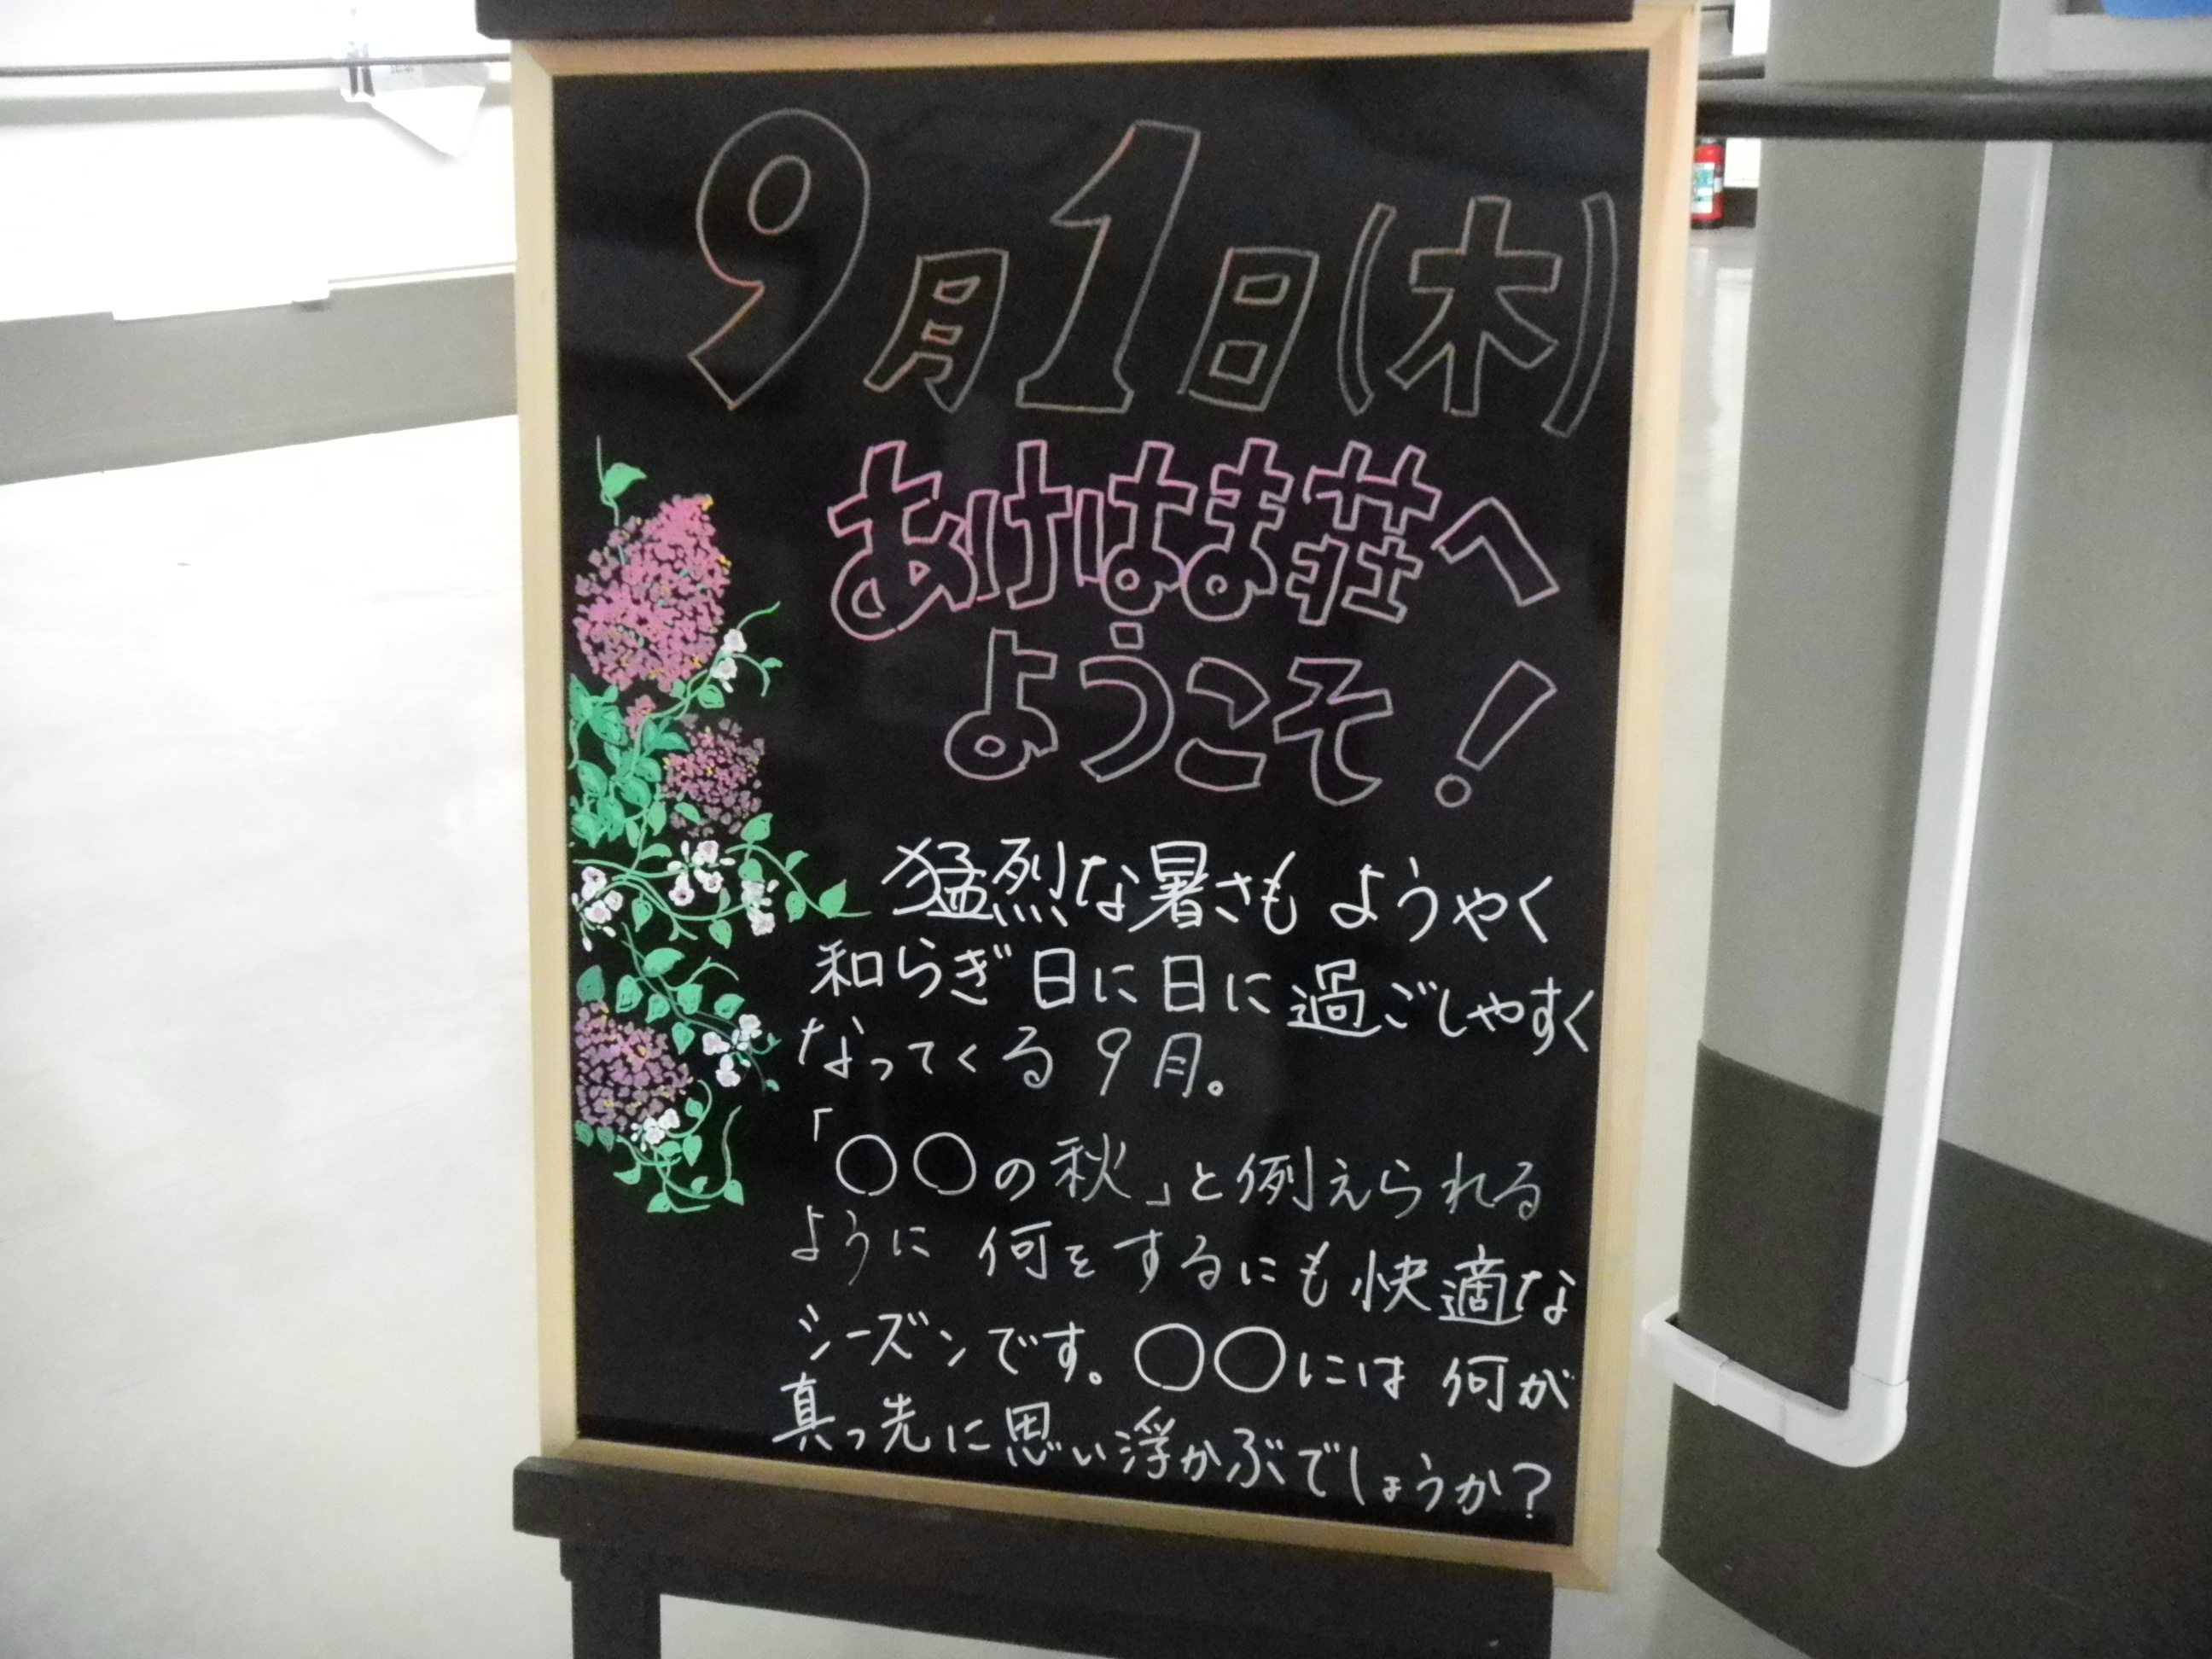 9月1日(木)
あけはま荘へ
ようこそ!
猛烈な暑さもようやく
和らぎ日に日に過ごしやすく
なってくる9月。
「○○の秋」と例えられる
ように何をするにも快適な
シーズンです。○○には何が
真っ先に思い浮かぶでしょうか?